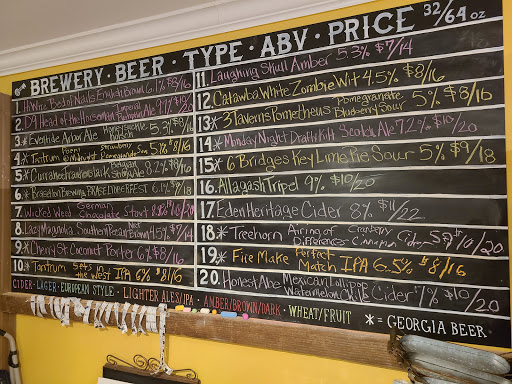 BREWERY · BEER · TYPE · ABV · PRICE 32/64 oz
1. Hi-Wire Bed of Nails English Brown 6.1% $8/16
2. D9 Head of the Horseman Imperial Pumpkin Ale
3.* Eventide Arbor Ale Honeysuckle Saison 5.3% $8/16
4.* Tantrum Strawberry Pomegranate Sour 5% $8/16
5.* Currahee Belgian Dark Strong 8.2% $8/16
6.* Braselton Brewing BRASELTOBERFEST 6.1% $9/18
7. Wicked Weed German Chocolate Stout
8. Lazy Magnolia Southern Pecan Nut Brown 4.5% $7/14
9.* Cherry St Coconut Porter 6% $8/16
10.* Tantrum Sets in the West IPA 6% $8/16
11. Laughing Skull Amber 5.3% $7/14
12. Catawba White Zombie Wit 4.5% $8/16
13.* 3 Taverns Prometheus Pomegranate Blueberry Sour 5% $8/16
14.* Monday Night Drafty Kilt Scotch Ale 7.2% $10/20
15.* 6 Bridges Key Lime Pie Sour 5% $9/18
16. Allagash Tripel 9% $10/20
17. Eden Heritage Cider 8% $11/22
18.* Treehorn Airing of Differences Cranberry Cinnamon Cider 5% $10/20
19.* Fire Maker Perfect Match IPA 6.5% $8/16
20. Honest Abe Mexican Lollipop Watermelon Chili Cider 7% $10/20
CIDER · LAGER · EUROPEAN STYLE · LIGHTER ALES/IPA · AMBER/BROWN/DARK · WHEAT/FRUIT * = GEORGIA BEER